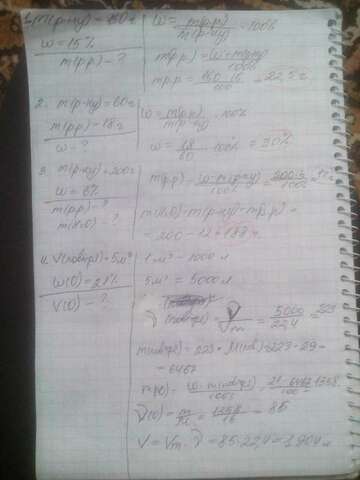 1. m(р-ну) = 150 г
w = 15%
m(р.р) - ?
w = m(р.р) / m(р-ну) · 100%
m(р.р) = w · m(р-ну) / 100%
m р.р = 150 · 15 / 100 = 22,5 г
2. m(р-ну) = 60 г
m(р.р) - 18 г
w - ?
w = m(р.р) / m(р-ну) · 100%
w = 18 / 60 · 100% = 30%
3. m(р-ну) = 200 г
w = 6%
m(р.р) - ?
m(H2O) - ?
m(р.р) = w · m(р-ну) / 100% = 200 · 6 / 100% = 12 г
m(H2O) = m(р-ну) - m р.р) =
= 200 - 12 = 188 г.
4. V(повітрі) = 5 м³
w(O) = 21%
V(O) - ?
1 м³ - 1000 л
5 м³ = 5000 л
(повітрі) = V / Vm = 5000 / 22,4 = 223
m(повітрі) = 223 · M(пов) = 223 · 29 =
= 6467
m(O) = w · m(повітрі) / 100% = 21 · 6467 / 100 = 1358
ν(O) = m / M = 1358 / 16 = 85
V = Vm · ν = 85 · 22,4 = 1904 л